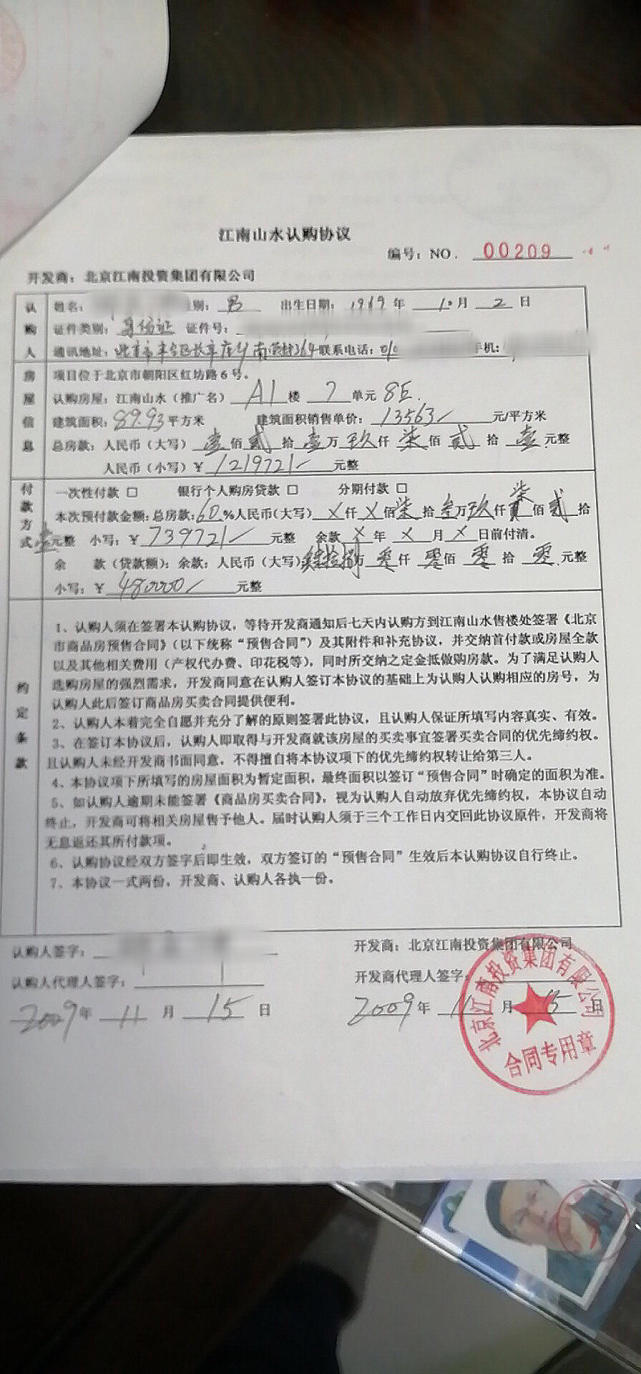 江南山水认购协议
编号：NO．00209
开发商：北京江南投资集团有限公司
认购人
姓名： 别：男 出生日期：1969年10月2日
证件类别：身份证 证件号：
通讯地址：北京市丰台区长辛店 364 联系电话：010 手机：
房屋信息
项目位于北京市朝阳区红坊路6号。
认购房屋：江南山水（推广名）A1楼 7单元 8E.
建筑面积：89.93平方米 建筑面积销售单价：13563/元/平方米
总房款：人民币（大写）壹佰贰拾壹万玖仟柒佰贰拾壹元整
人民币（小写）￥1219721/元整
付款方式
一次性付款□ 银行个人购房贷款□ 分期付款□
本次预付款金额：总房款：60.%人民币（大写）X仟X佰柒拾叁万玖仟柒佰贰拾
壹元整 小写：￥739721/元整 余款X年X月X日前付清。
余 款（贷款额）：余款：人民币（大写） 万零仟零佰零拾零元整
小写：￥480000/元整
约定条款
1、认购人须在签署本认购协议，等待开发商通知后七天内认购方到江南山水售楼处签署《北京
市商品房预售合同》（以下统称“预售合同”）及其附件和补充协议，并交纳首付款或房屋全款
以及其他相关费用（产权代办费、印花税等），同时所交纳之定金抵做购房款。为了满足认购人
选购房屋的强烈需求，开发商同意在认购人签订本协议的基础上为认购人认购相应的房号，为
认购人此后签订商品房买卖合同提供便利。
2、认购人本着完全自愿并充分了解的原则签署此协议，且认购人保证所填写内容真实、有效。
3、在签订本协议后，认购人即取得与开发商就该房屋的买卖事宜签署买卖合同的优先缔约权。
且认购人未经开发商书面同意，不得擅自将本协议项下的优先缔约权转让给第三人。
4、本协议项下所填写的房屋面积为暂定面积，最终面积以签订“预售合同”时确定的面积为准。
5、如认购人逾期未能签署《商品房买卖合同》，视为认购人自动放弃优先缔约权，本协议自动
终止，开发商可将相关房屋售予他人。届时认购人须于三个工作日内交回此协议原件，开发商将
无息返还其所付款项。
6、认购协议经双方签字后即生效，双方签订的“预售合同”生效后本认购协议自行终止。
7、本协议一式两份，开发商、认购人各执一份。
认购人签字： 开发商：北京江南投资集团有限公司
认购人代理人签字： 开发商代理人签字：
2009年11月15日 2009年11月15日
北京江南投资集团有限公司
合同专用章